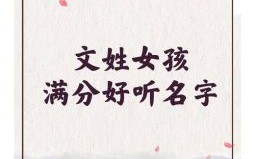 文姓女孩
满分好听名字